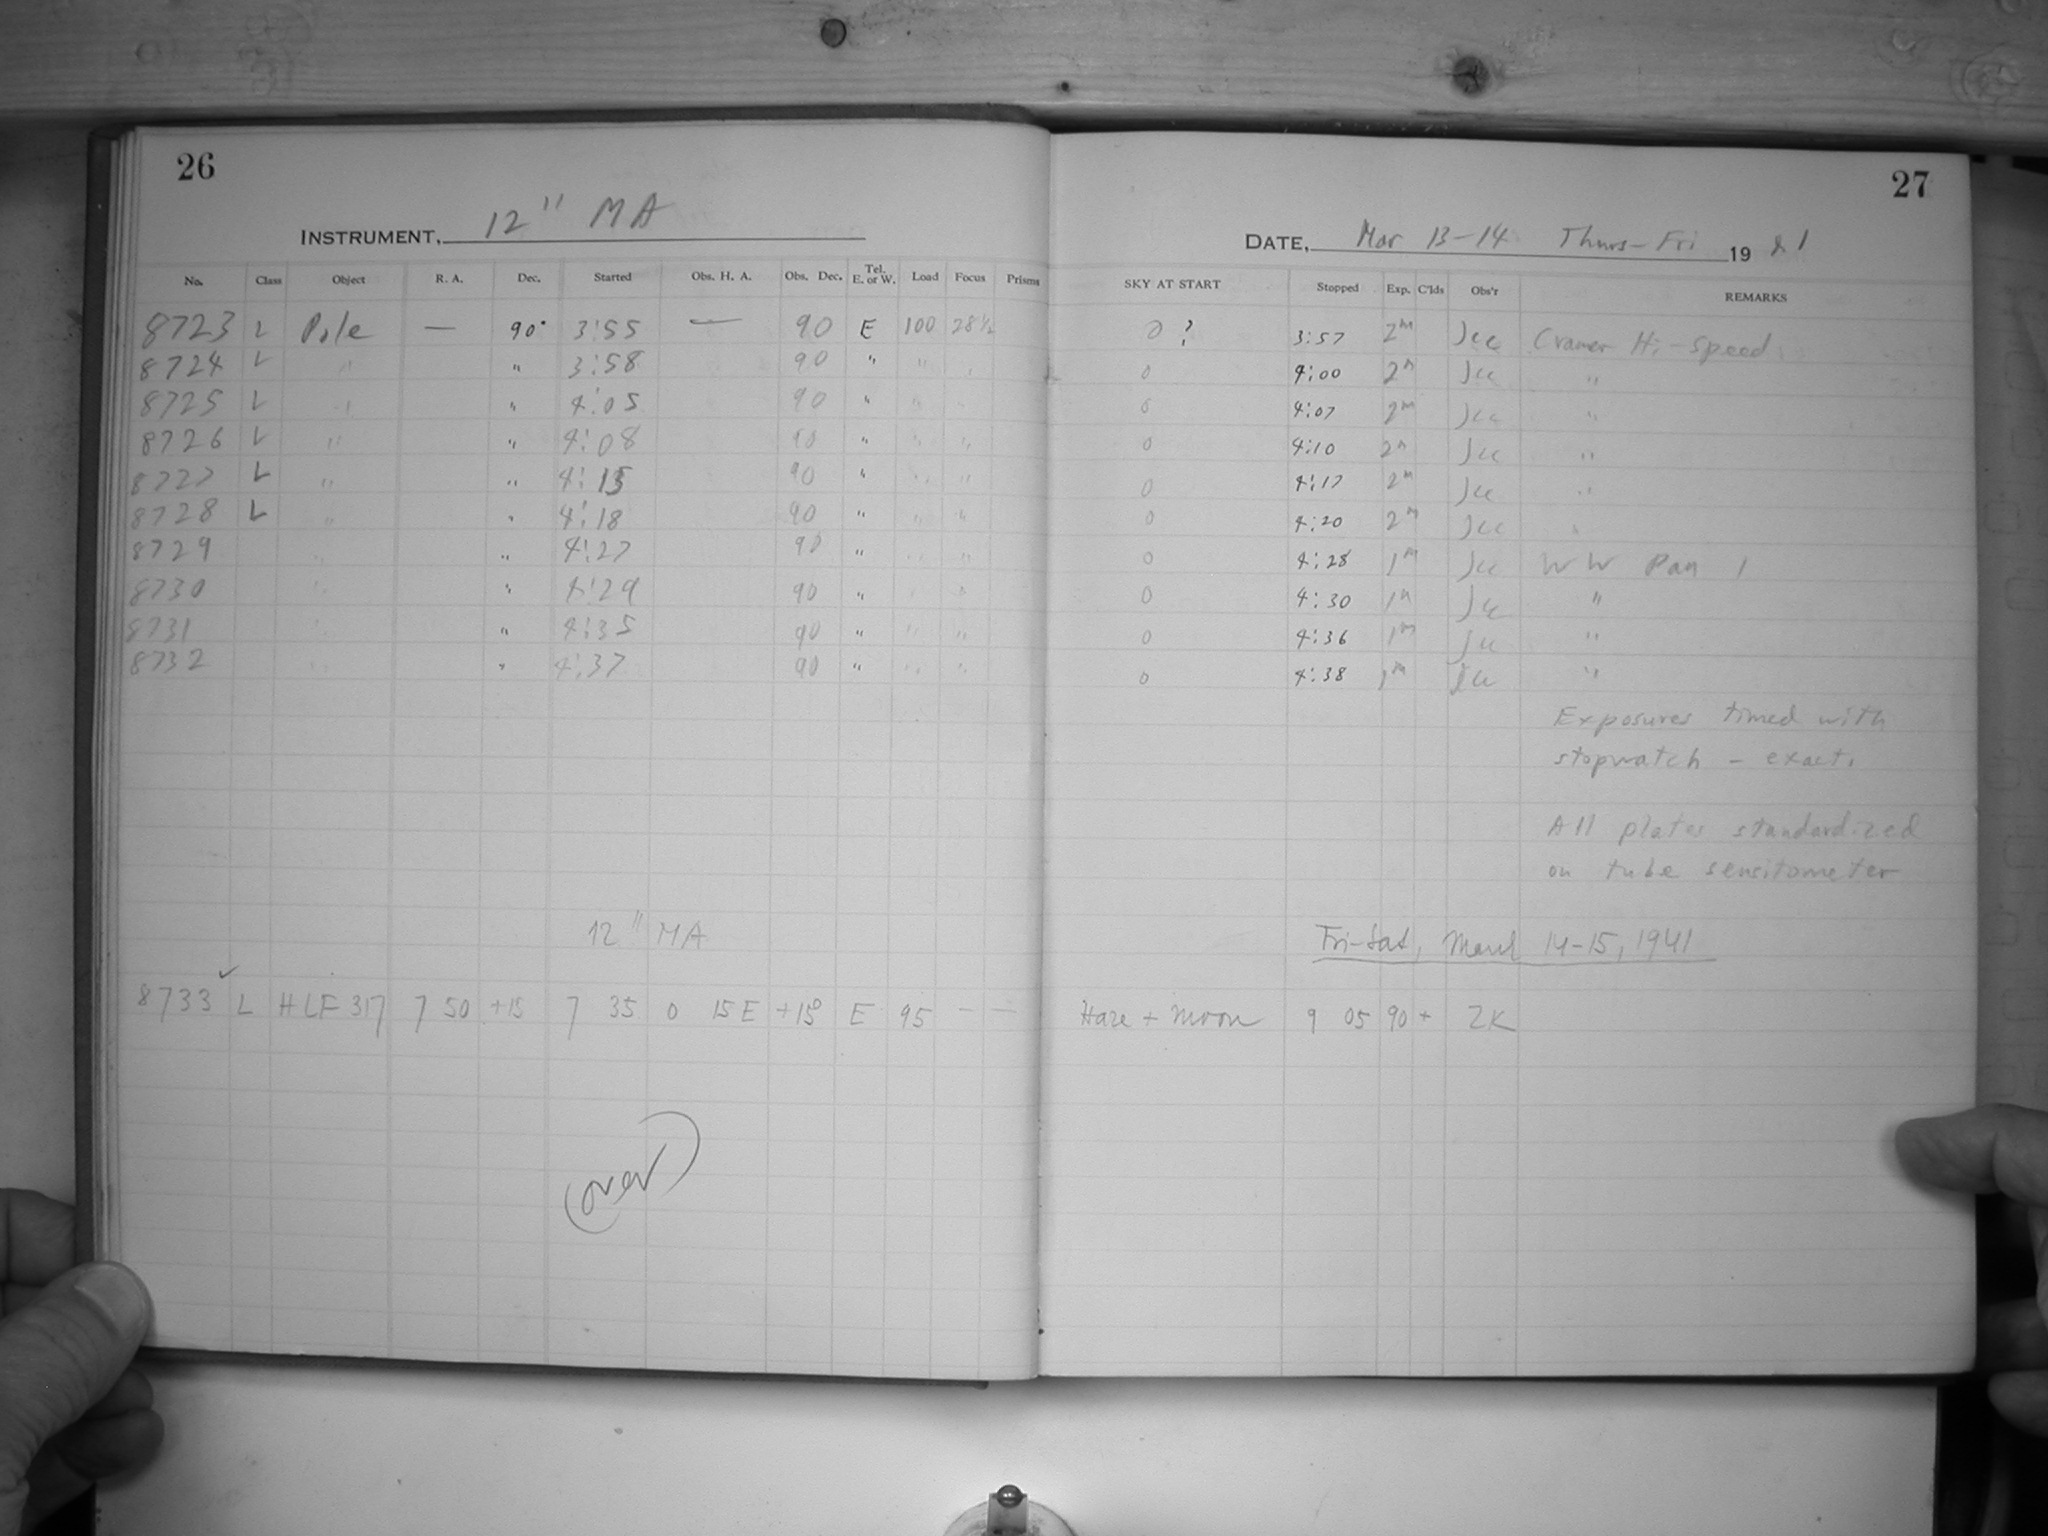 26
INSTRUMENT, 12" MA
No. Class Object R. A. Dec. Started Obs. H. A. Obs. Dec. Tel. E. or W. Load Focus Prisms
8723 L Pole — 90° 3:55 — 90 E 100 28½
8724 L " " 3:58 90 " " "
8725 L " " 4:05 90 " " "
8726 L " " 4:08 90 " " "
8727 L " " 4:15 90 " " "
8728 L " " 4:18 90 " " "
8729 " " 4:27 90 " " "
8730 " " 4:29 90 " " "
8731 " " 4:35 90 " " "
8732 " " 4:37 90 " " "
12" MA
8733 ✓ L HLF 317 7 50 +15 7 35 0 15 E +15° E 95 — —
(over)
27
DATE, Mar 13-14 Thurs-Fri 1941
SKY AT START Stopped Exp. C'lds Obs'r REMARKS
0 ? 3:57 2m Cramer Hi-speed
0 4:00 2m "
0 4:07 2m "
0 4:10 2m "
0 4:17 2m "
0 4:20 2m "
0 4:28 1m WW Pan 1
0 4:30 1m "
0 4:36 1m "
0 4:38 1m "
Exposures timed with
stopwatch - exact.
All plates standardized
on tube sensitometer
Fri-Sat, March 14-15, 1941
Haze + Moon 9 05 90 + ZK